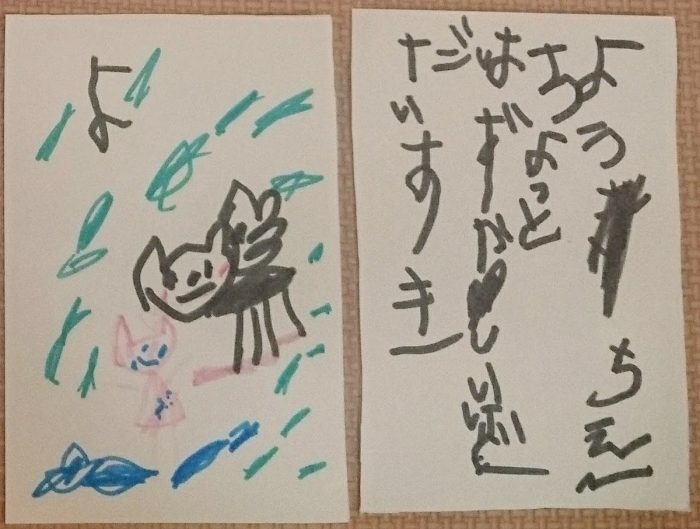 よ
よう ちえん
ちょっと
はずかしいけど
だいすき